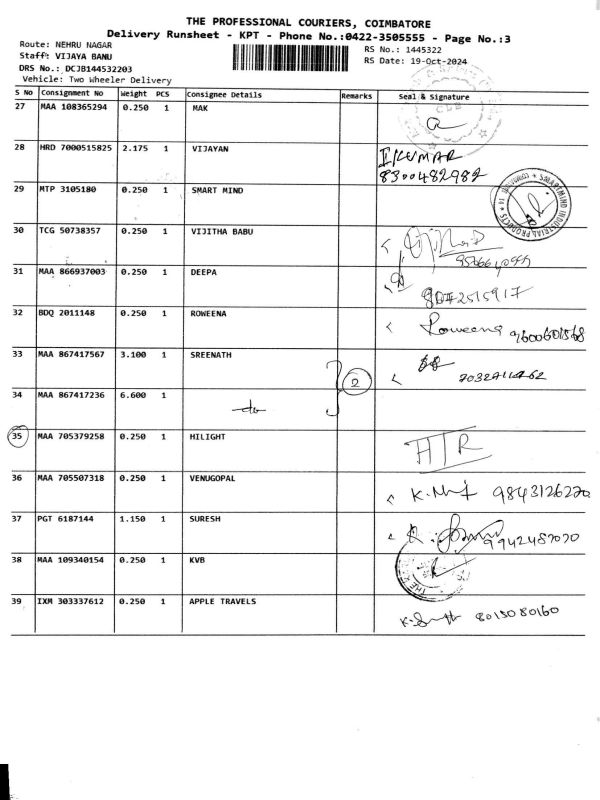 THE PROFESSIONAL COURIERS, COIMBATORE
Delivery Runsheet - KPT - Phone No.:0422-3505555 - Page No.:3
Route: NEHRU NAGAR
RS No.: 1445322
Staff: VIJAYA BANU
RS Date: 19-Oct-2024
DRS No.: DCJB144532203
Vehicle: Two Wheeler Delivery
S No Consignment No Weight PCS Consignee Details Remarks Seal & Signature
27 MAA 108365294 0.250 1 MAK
28 HRD 7000515825 2.175 1 VIJAYAN
8300482982
29 MTP 3105180 0.250 1 SMART MIND
SMARTMIND INDUSTRIAL PRODUCTS
30 TCG 50738357 0.250 1 VIJITHA BABU
31 MAA 866937003 0.250 1 DEEPA
32 BDQ 2011148 0.250 1 ROWEENA Roweena 9600601568
33 MAA 867417567 3.100 1 SREENATH
2
34 MAA 867417236 6.600 1
do
35 MAA 705379258 0.250 1 HILIGHT
36 MAA 705507318 0.250 1 VENUGOPAL 9843126270
37 PGT 6187144 1.150 1 SURESH
38 MAA 109340154 0.250 1 KVB
39 IXM 303337612 0.250 1 APPLE TRAVELS 8015080160